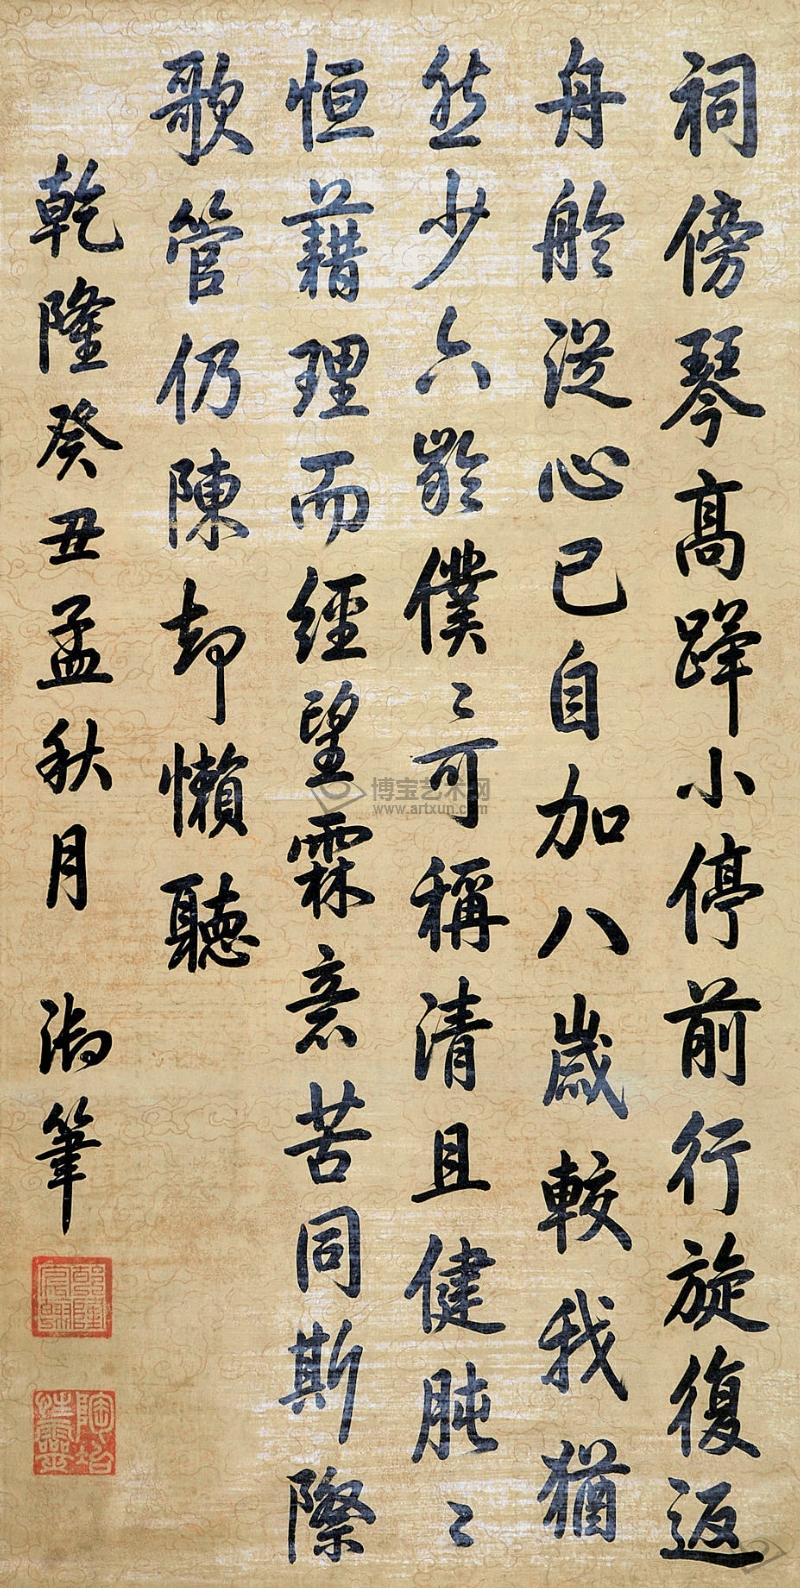 祠傍琴高蹕小停前行旋復返
舟舲從心已自加八歲較我猶
然少六齡僕〻可稱清且健肫〻
恒藉理而經望霖意苦同斯際
歌管仍陳却懶聽
乾隆癸丑孟秋月 御筆
乾隆宸翰
陶冶性靈
博宝艺术网
www.artxun.com